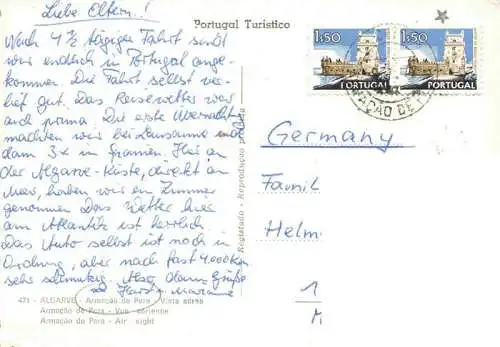 Liebe Eltern..!
Nach 4½ tägiger Fahrt sind
wir endlich in Portugal ange-
kommen. Die Fahrt selbst ver-
lief gut. Das Reisewetter war
auch prima. Die erste Übernacht.
machten wir bei Lausanne und
dann 3x in Spanien. Hier an
der Algarve-Küste, direkt am
Meer, haben wir ein Zimmer
genommen Das Wetter hier
am Atlantik ist herrlich
Das Auto selbst ist noch in
Ordnung, aber nach fast 4000 km
sehr schmutzig. Also dann Grüße
Marianne
471 - ALGARVE - Armação de Pera - Vista aérea
Armação de Pera - Vue aérienne
Armação de Pera - Air sight
Portugal Turístico
Registado - Reprodução proibida
1$50
PORTUGAL
1$50
PORTUGAL
MAÇÃO DE P
Germany
Famil
Helm
1
M